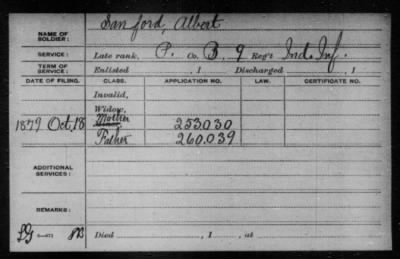 NAME OF SOLDIER: Sanford, Albert
SERVICE: Late rank, P. Co. B, 9 Reg't Ind. Inf.
TERM OF SERVICE: Enlisted , 1 Discharged , 1
DATE OF FILING. CLASS. APPLICATION NO. LAW. CERTIFICATE NO.
Invalid,
Widow,
1879 Oct, 18 Mother 253030
Father 260.039
ADDITIONAL SERVICES:
REMARKS:
Died , 1 , at